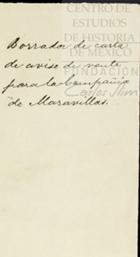 CENTRO DE
ESTUDIOS
DE HISTORIA
DE MÉXICO
FUNDACIÓN
Carlos Slim
Borrador de carta
de aviso de venta
para la Compañia
de Maravillas.